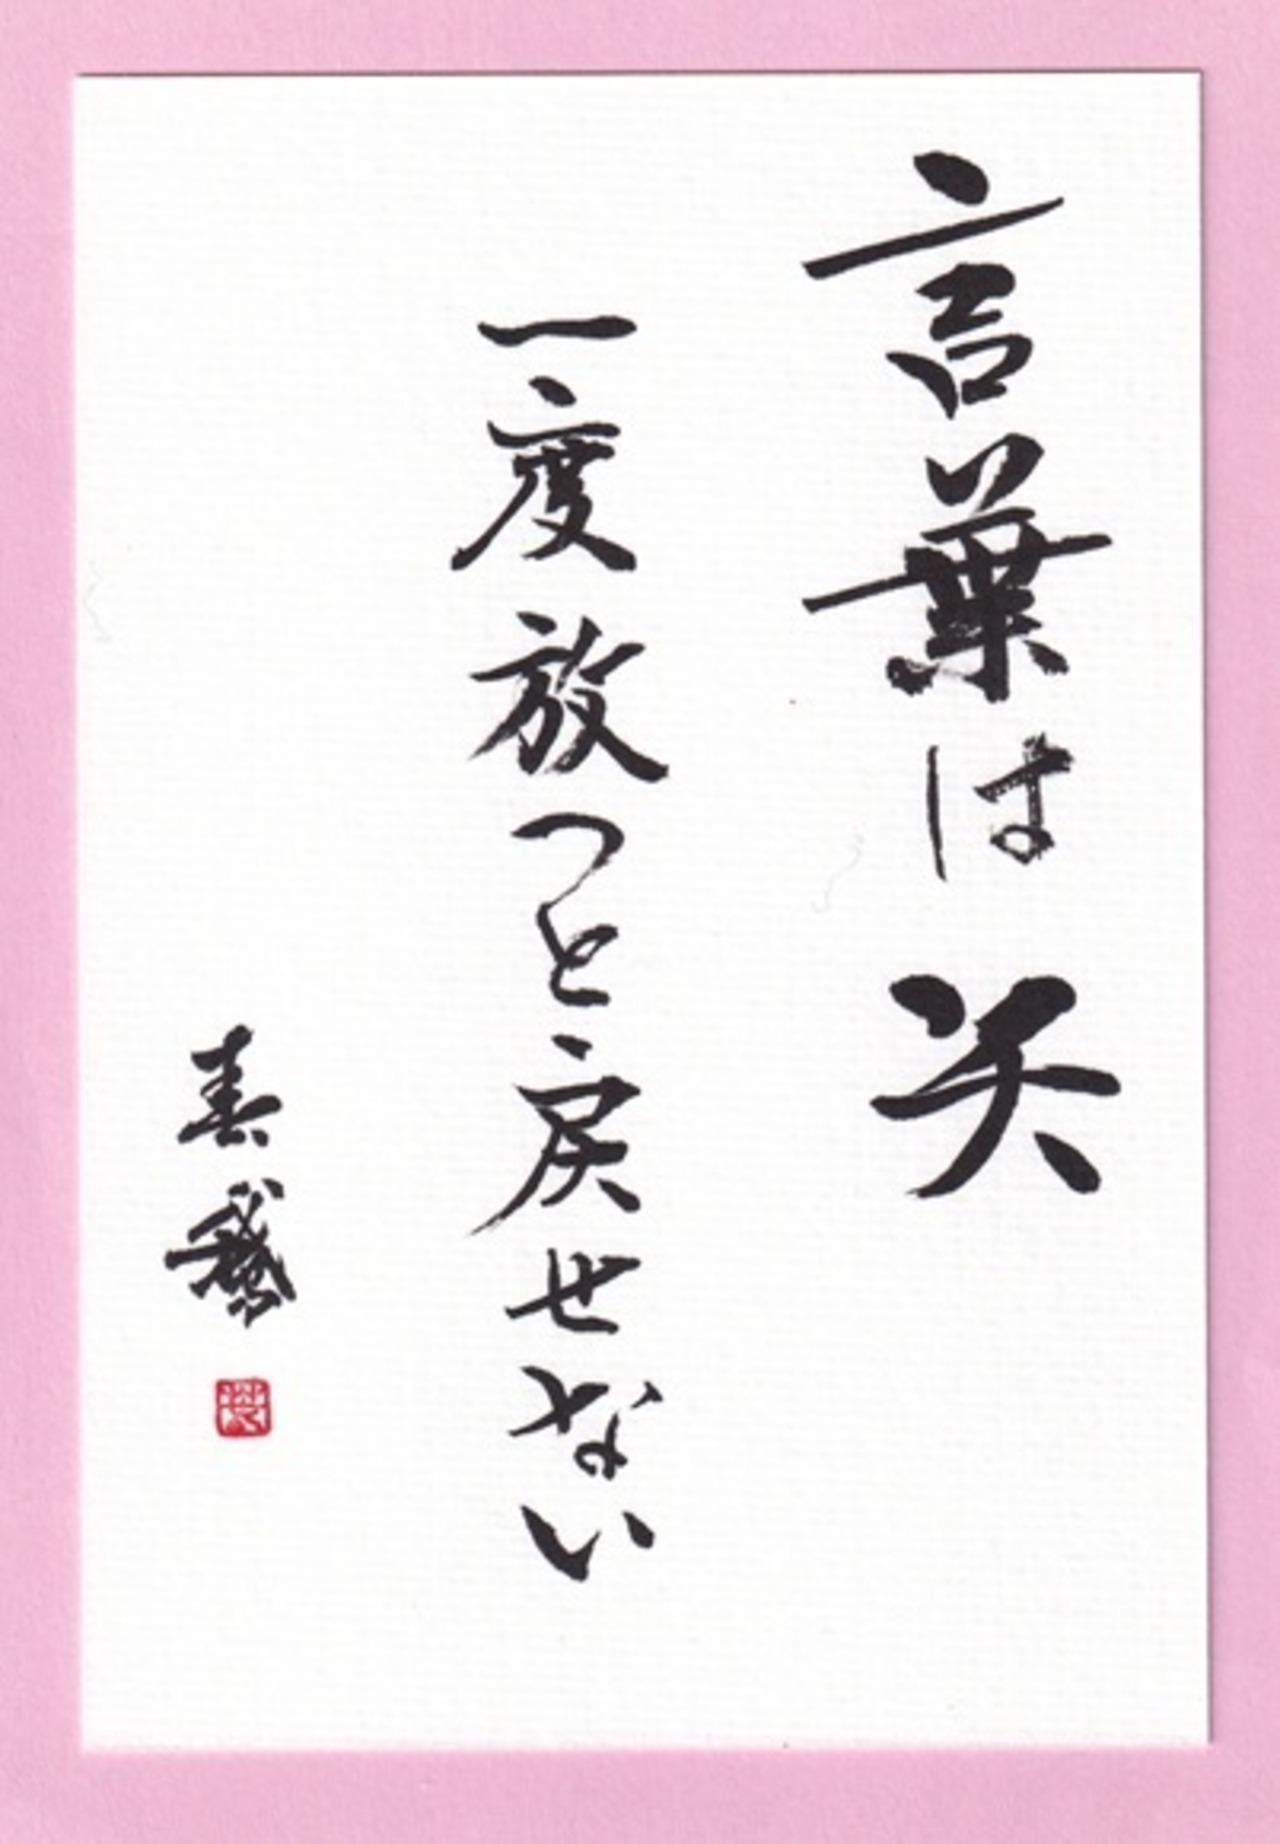 言葉は矢
一度放つと戻せない
春鵞